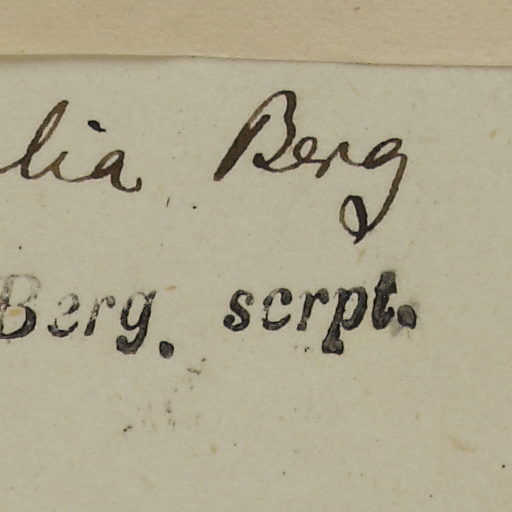 lia Berg
Berg. scrpt.